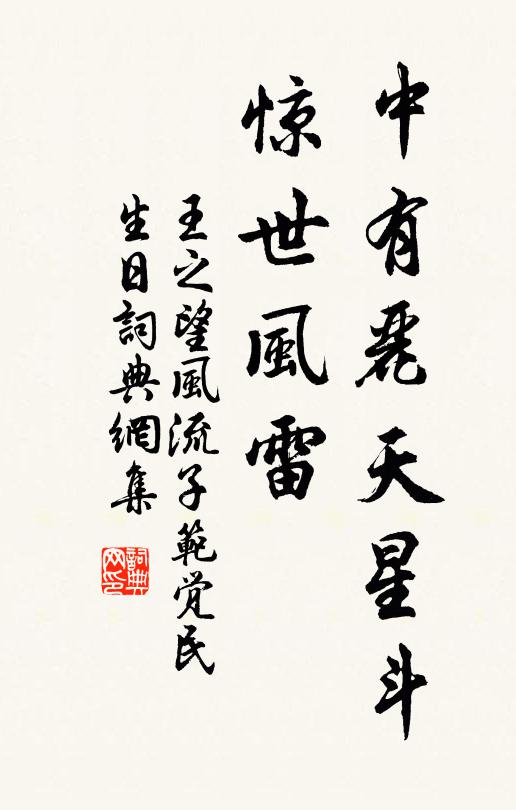 中有麗天星斗
惊世風雷
王之望風流子範覚民
生日詞典網集
詞典網印